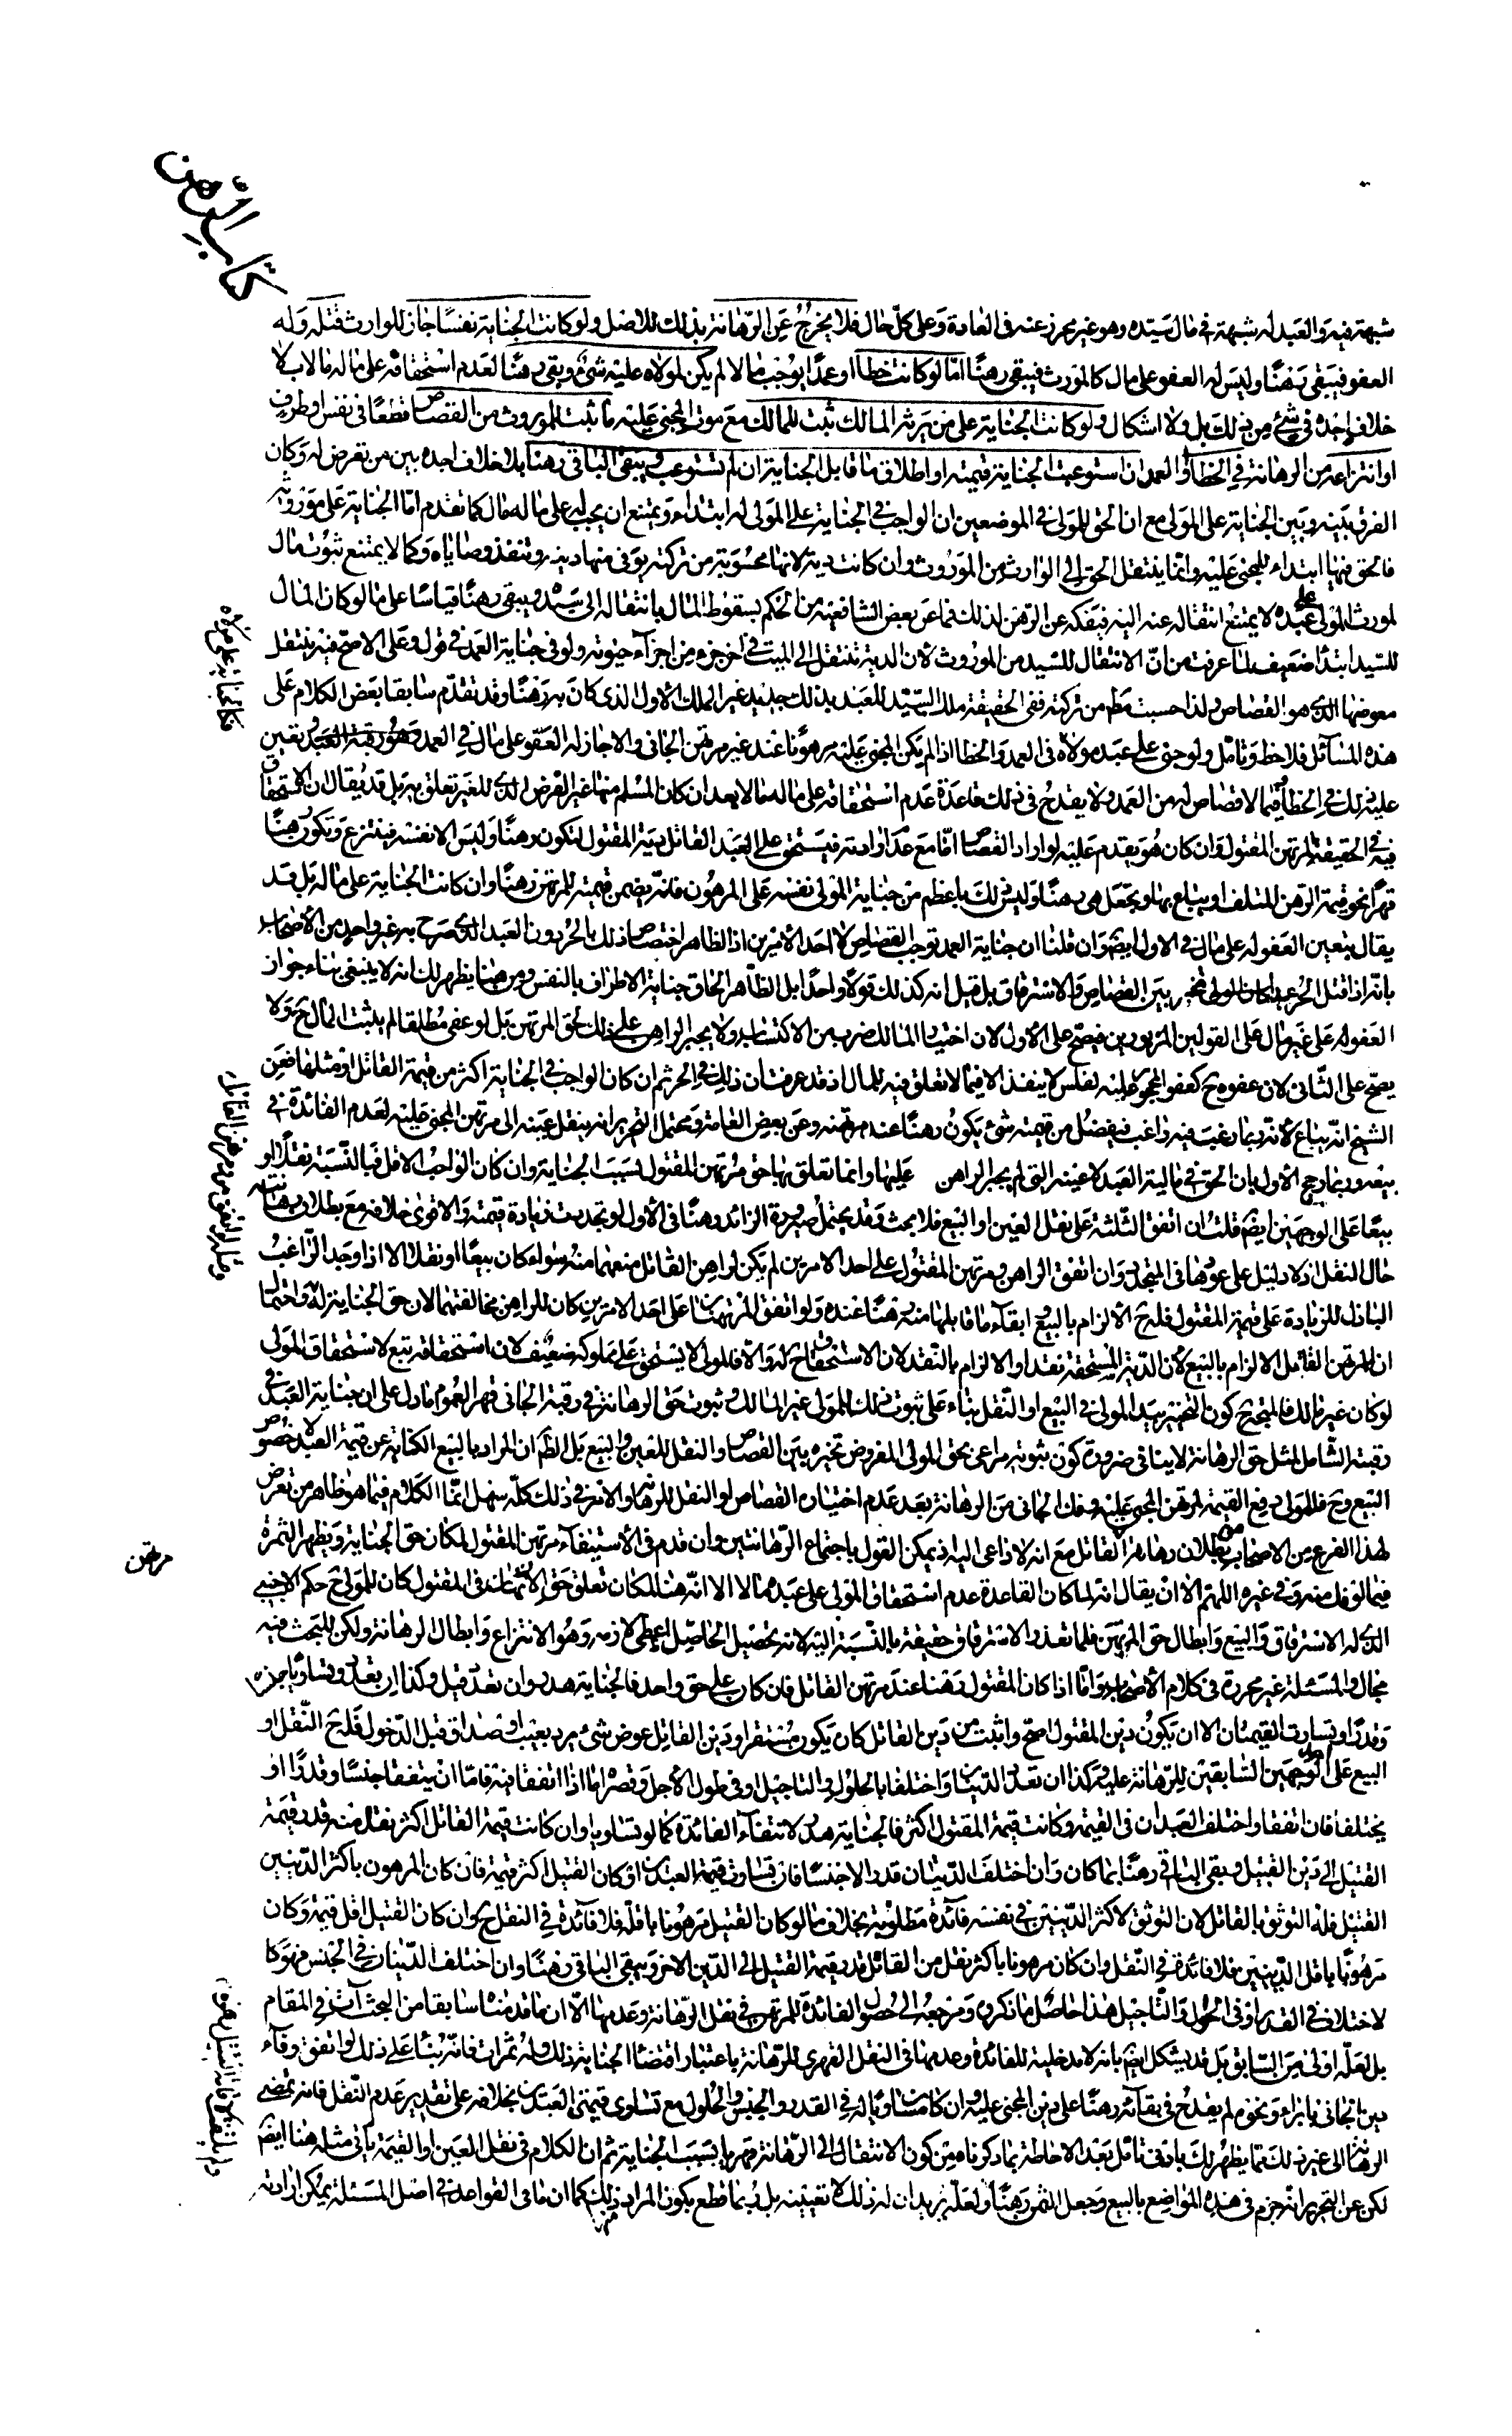 كتاب الرهن
شبهة فيه والعبد له شبهة في مال سيده وهو غير محرز عنه في العادة وعلى كل حال فلا يخرج عن الرهانة بذلك للاصل ولو كانت الجناية نفسا جاز للوارث قتله وله
العفو فيبقى رهنا وليس له العفو على مال كالمورث فيبقى رهنا اما لو كانت خطا او عمدا يوجب مالا لم يكن لمولاه عليه شئ وبقى رهنا لعدم استحقاقه على ماله مالا بلا
خلاف اجده في شئ من ذلك بل ولا اشكال ولو كانت الجناية على من يرثه المالك ثبت للمالك مع موت المجنى عليه ما ثبت للموروث من القصاص قطعا في نفس او طرف
او انتزاعه من الرهانة في الخطأ والعمد ان استوعبت الجناية قيمته او اطلاق ما قابل الجناية ان لم تستوعب ويبقى الباقي رهنا بلا خلاف اجده بين من تعرض له وكان
الفرق بينه وبين الجناية على المولى مع ان الحق للمولى في الموضعين ان الواجب في الجناية على المولى له ابتداء ويمتنع ان يجب له على ماله مال كما تقدم اما الجناية على موروثه
فالحق فيها ابتداء للمجنى عليه وانما ينتقل الحق الى الوارث من الموروث وان كانت دية لانها محسوبة من تركته يوفى منها دينه وتنفذ وصاياه وكما لا يمتنع ثبوت مال
لمورث المولى على عبده لا يمتنع انتقاله عنه اليه فيفكه عن الرهن لذلك فما عن بعض الشافعية من الحكم بسقوط المال بانتقاله الى سيده ويبقى رهنا قياسا على ما لو كان المال
للسيد ابتدا ضعيف لما عرفت من ان الانتقال للسيد من الموروث لان الدية تنتقل الى الميت في اخر جزء من اجزاء حيوته ولو في جناية العمد في قول وعلى الاصح فيه ينتقل
معوضها الذي هو القصاص ولذا حسبت من تركته ففي الحقيقة ملك السيد للعبد بذلك جديد غير الملك الاول الذي كان به رهنا وقد تقدم سابقا بعض الكلام على
هذه المسائل فلاحظ وتامل ولو جنى على عبد مولاه في العمد والخطا اذا لم يكن المجنى عليه مرهونا عند غير مرتهن الجاني والا جاز له العفو على مال في العمد
عليه ذلك في الخطأ فيما لا قصاص له من العمد ولا يقدح في ذلك قاعدة عدم استحقاقه على ماله مالا بعد ان كان المسلم منها غير الفرض الذي للغير تعلق به بل قد يقال ان الاستحقاق
فيه في الحقيقة لمرتهن المقتول وان كان هو يقدم عليه لو اراد القصاص اما مع عدم ارادته فيستحق على العبد القاتل دية المقتول لتكون رهنا وليس الا نفسه فينتزع ويكون رهنا
قهرا نحو قيمة الرهن المتلف او يباع بها ويجعل هي رهنا وليس ذلك باعظم من جناية المولى نفسه على المرهون فانه يضمن قيمته للمرتهن رهنا وان كانت الجناية على ماله بل قد
يقال يتعين العفو له على مال في الاول ايضا وان قلنا ان جناية العمد توجب القصاص لا احد الامرين اذ الظاهر اختصاص ذلك بالحر دون العبد الذي صرح به غير واحد من الاصحاب
بانه اذا قتل الحر عبدا كان لولى مخير بين القصاص والاسترقاق بل قيل انه كذلك قولا واحدا بل الظاهر الحاق جناية الاطراف بالنفس ومن هنا يظهر لك انه لا ينبغي بناء جواز
العفو له على غير مال على القولين المزبورين فيصح على الاول لان اختيار المالك ضرب من الاكتساب ولا يجبر الراهن على ذلك لحق المرتهن بل لو عفى مطلقا لم يثبت المال ح ولا
يصح على الثاني لان عفوه ح كعفو المحجور عليه لفلس لا ينفذ الا فيما لا تعلق فيه للمال اذ قد عرفت ان ذلك في الحر ثم ان كان الواجب في الجناية اكثر من قيمة القاتل او مثلها فعن
الشيخ انه يباع لانه ربما رغب فيه راغب فيفضل من قيمته شئ يكون رهنا عند مرتهنه وعن بعض العامة ويحتمل التحرير انه ينقل عينه الى مرتهن المجنى عليه لعدم الفائدة في
بيعه وربما رجح الاول بان الحق في مالية العبد لا عينه التي لم يجبر الراهن عليها وانما تعلق بها حق مرتهن المقتول بسبب الجناية وان كان الواجب الاقل فبالنسبة نقلا او
بيعا على الوجهين ايضا قلت ان اتفق الثلثة على نقل العين او البيع فلا بحث وقد يحتمل صيرورة الزائد رهنا في الاول لو تجددت زيادة قيمته والاقوى خلافه مع بطلان رهانته
حال النقل اذ لا دليل على عودها في المتجدد وان اتفق الراهن ومرتهن المقتول على احد الامرين لم يكن لراهن القاتل منعهما منه سواء كان بيعا او نقلا الا اذا وجد الراغب
الباذل للزيادة على قيمة المقتول فله ح الالزام بالبيع ابقاء ما قابلها منه رهنا عنده ولو اتفق المرتهنان على احد الامرين كان للراهن مخالفتهما لان حق الجناية له واحتمال
ان لمرتهن القاتل الالزام بالبيع لان الدية المستحقة نقد او الالزام بالنقد لان الاستحقاق ح له والا فالمولى لا يستحق على مملوكه ضعيف لان استحقاقه تبع لاستحقاق المولى
لو كان غير مالك فالمتجه ح كون التخيير بيد المولى في البيع او النقل بناء على ثبوت ذلك للمولى غير المالك وثبوت حق الرهانة في رقبة الجاني قهرا لعموم ما دل على ان جناية العبد في
رقبته الشامل لمثل حق الرهانة لا ينافي ضرورة كون ثبوته مراعى بحق المولى المفروض تخيره بين القصاص والنقل للعين والبيع بل الظ ان المراد بالبيع الكناية عن قيمة العبد لا خصوص
البيع وح فللمولى دفع القيمة لمرتهن المجنى عليه وفك الجاني من الرهانة بعد عدم اختياره القصاص او النقل للرهانة والامر في ذلك كله سهل انما الكلام فيما هو ظاهر من تعرض
لهذا الفرع من الاصحاب من بطلان رهانة القاتل مع انه لا داعى اليه اذ يمكن القول باجتماع الرهانتين وان قدم في الاستيفاء مرتهن المقتول لمكان حق الجناية ويظهر الثمرة
فيما لو فك منه وفي غيره اللهم الا ان يقال انه لما كان القاعدة عدم استحقاق المولى على عبده مالا الا انه هنا لمكان تعلق حق الارتهان في المقتول كان للمولى ح حكم الاجنبي
الذي له الاسترقاق والبيع وابطال حق المرتهن فلما تعذر الاسترقاق حقيقة بالنسبة اليه لانه تحصيل الحاصل اعطى لازمه وهو الانتزاع وابطال الرهانة ولكن للبحث فيه
مجال والمسئلة غير محررة في كلام الاصحاب واما اذا كان المقتول رهنا عند مرتهن القاتل فان كان على حق واحد فالجناية هدر وان تعدد قيل وكذا ان تعدد وتساويا جنسا
وقدرا وتساوت القيمتان الا ان يكون دين المقتول اصح واثبت من دين القاتل كان يكون مستقرا ودين القاتل عوض شئ يرد بعيب او صداق قبل الدخول فله ح النقل او
البيع على الوجهين السابقين للرهانة عليه وكذا ان تعدد الدينان واختلفا بالحلول والتاجيل او في طول الاجل وقصره اما اذا اتفقا فيه فاما ان يتفقا جنسا وقدرا او
يختلفا فان اتفقا واختلف العبدان في القيمة وكانت قيمة المقتول اكثر فالجناية هدر لانتفاء الفائدة كما لو تساويا وان كانت قيمة القاتل اكثر نقل منه قدر قيمة
القتيل الى دين القتيل وبقى الباقي رهنا بما كان وان اختلف الدينان قدرا لا جنسا فان تساوت قيمة العبدين او كان القتيل اكثر قيمة فان كان المرهون باكثر الدينين
القتيل فله التوثق بالقاتل لان التوثق لاكثر الدينين في نفسه فائدة مطلوبة بخلاف ما لو كان القتيل مرهونا باقله فلا فائدة في النقل ح وان كان القتيل اقل قيمة وكان
مرهونا باقل الدينين فلا فائدة في النقل وان كان مرهونا باكثر نقل من القاتل قدر قيمة القتيل الى الدين الاخر ويبقى الباقي رهنا وان اختلف الدينان في الجنس فهو كا
لاختلاف في القدر او في الحلول والتاجيل هذا حاصل ما ذكروه ومرجعه الى حصول الفائدة للمرتهن في نقل الرهانة وعدمها الا ان ما قدمناه سابقا من البحث آت في المقام
بل لعله اولى من السابق بل قد يشكل ايضا بانه لا مدخلية للفائدة وعدمها في النقل القهري للرهانة باعتبار اقتضاء الجناية ذلك وله ثمرات فانه بناء على ذلك لو اتفق وفاء
دين الجاني بابراء ونحوه لم يقدح في بقائه رهنا على دين المجنى عليه وان كان مساويا له في القدر والجنس والحلول مع تساوى قيمتي العبدين بخلافه على تقدير عدم النقل فانه تمضي
الرهانة الى غير ذلك مما يظهر لك بادنى تامل بعد الاحاطة بما ذكرناه من كون الانتقال الى الرهانة قهريا بسبب الجناية ثم ان الكلام في نقل العين او القيمة ياتى مثله هنا ايضا
لكن عن التحرير انه جزم في هذه المواضع بالبيع وجعل الثمن رهنا ولعله يريد ان له ذلك لا تعيينه بل ربما قطع بكون المراد ذلك كما ان ما في القواعد في اصل المسئلة يمكن ارادته
مرتهن